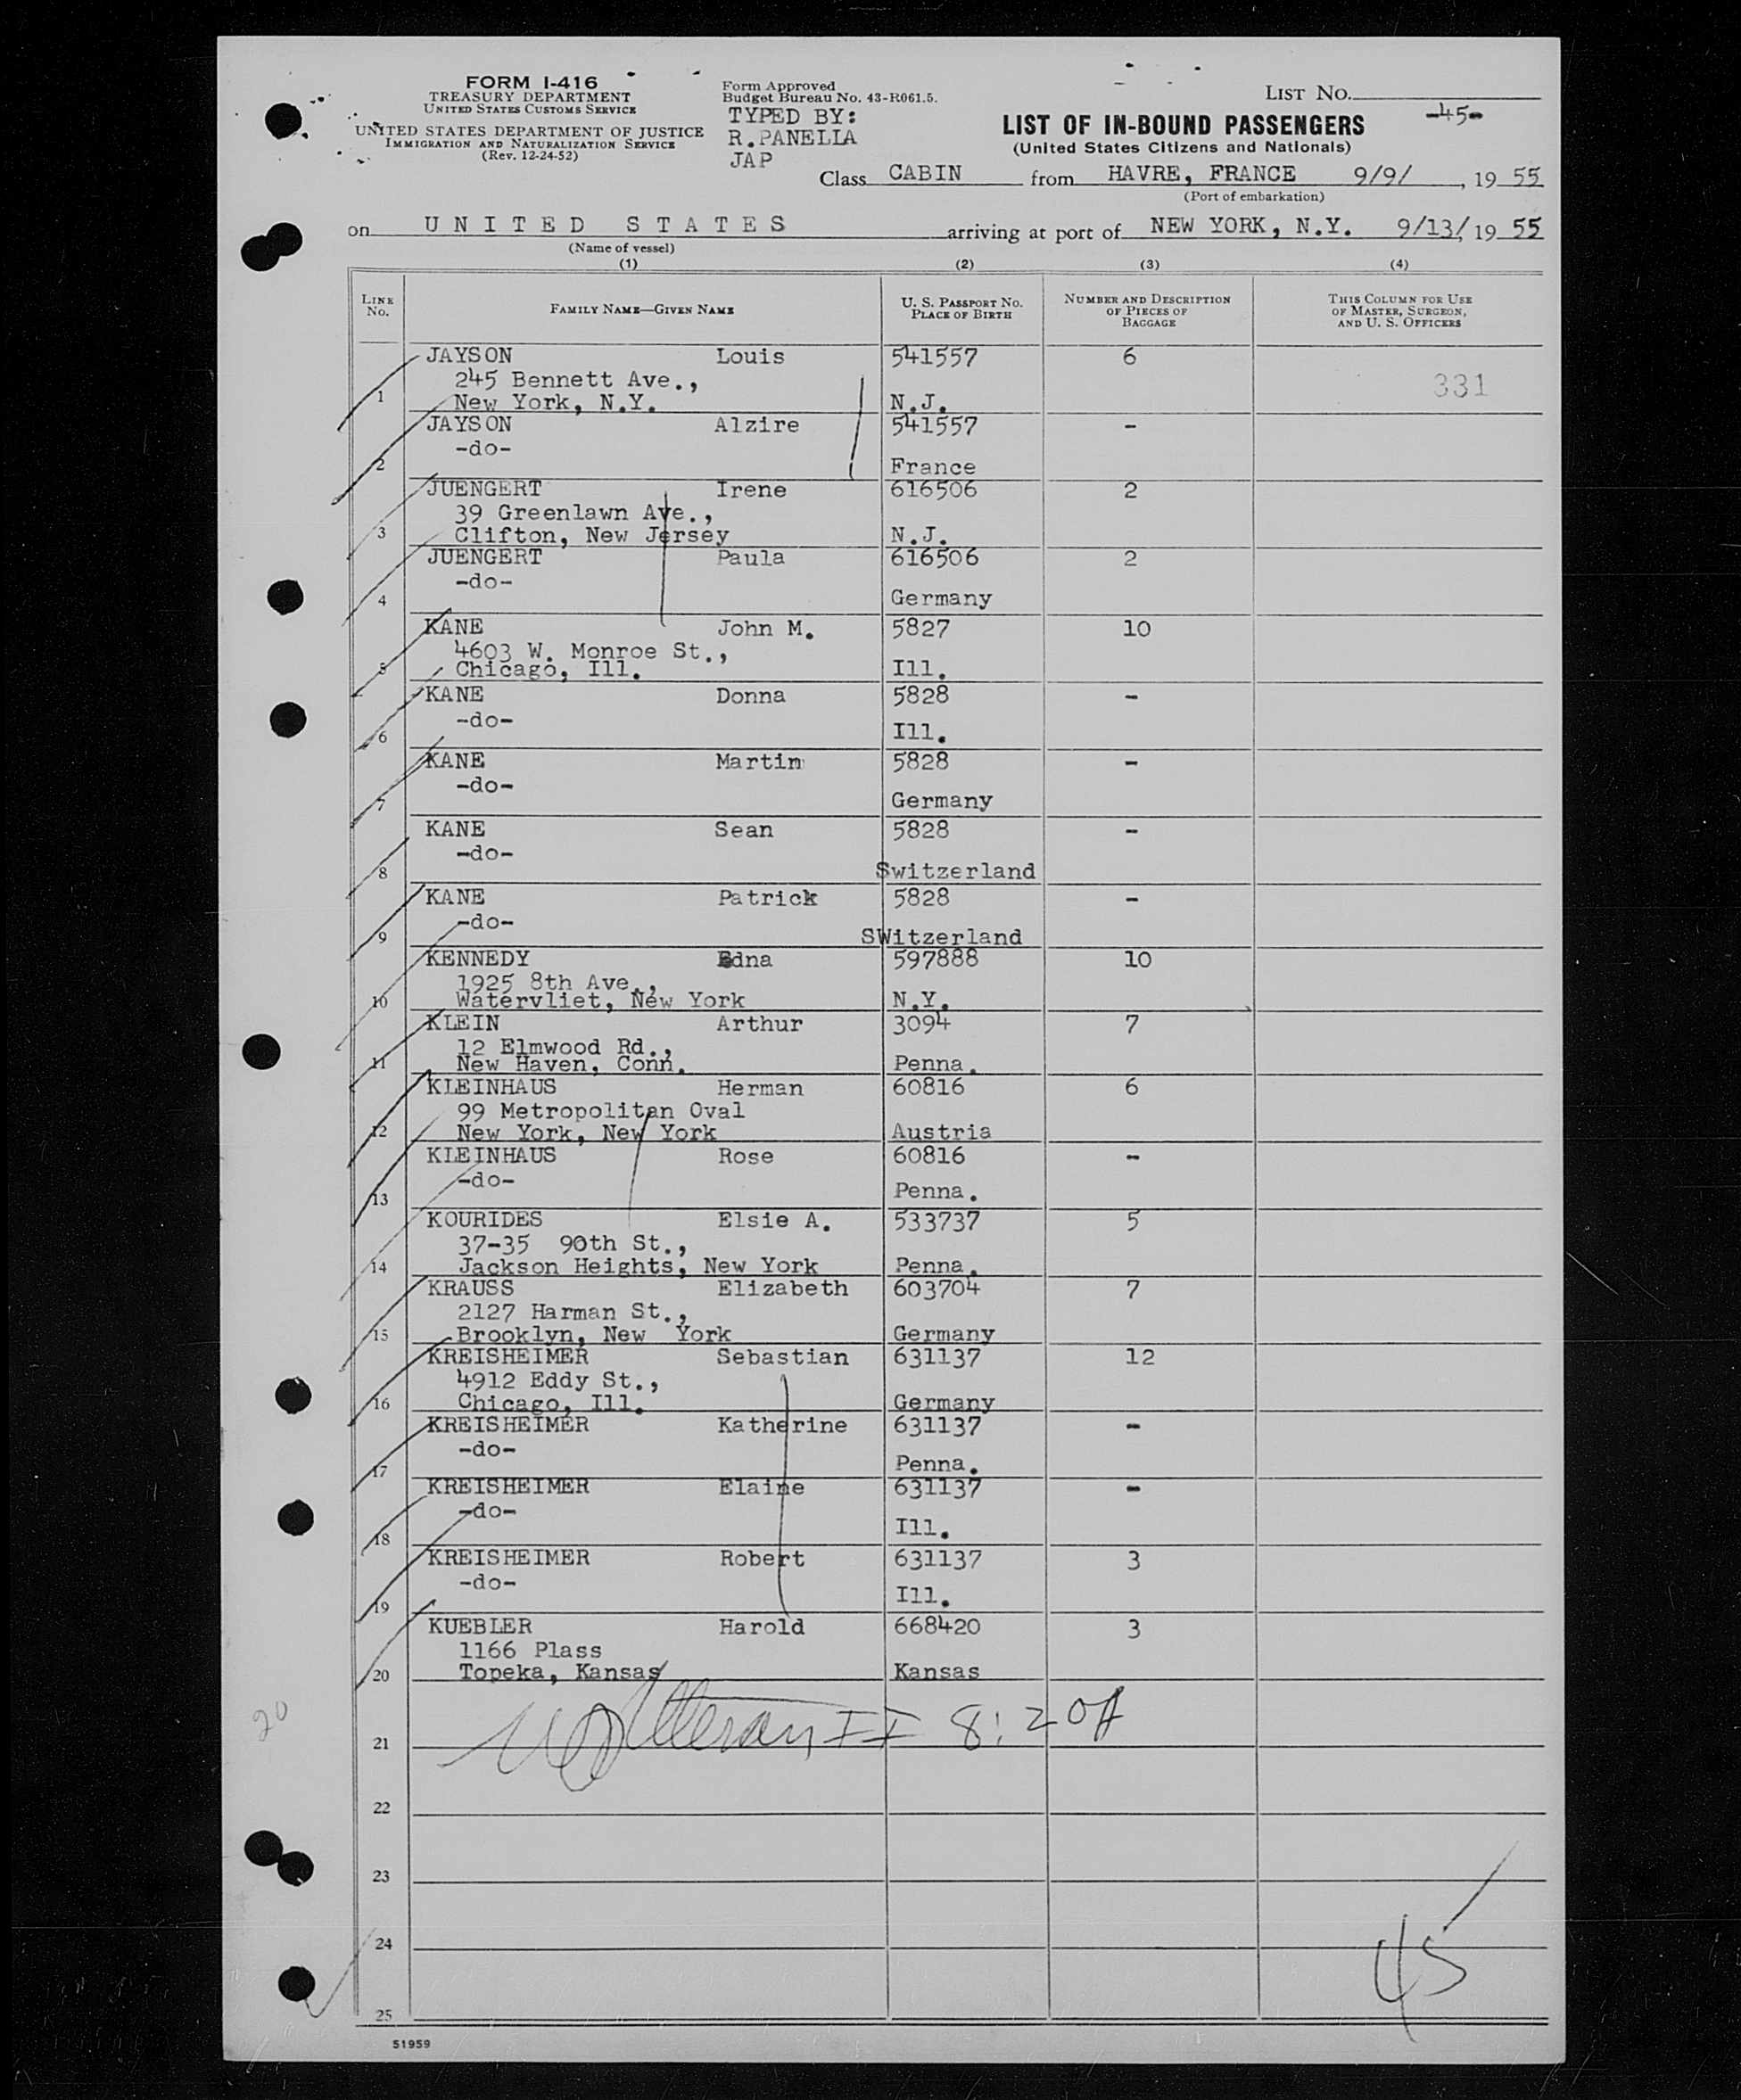 FORM I-416
TREASURY DEPARTMENT
UNITED STATES CUSTOMS SERVICE
UNITED STATES DEPARTMENT OF JUSTICE
IMMIGRATION AND NATURALIZATION SERVICE
(Rev. 12-24-52)
Form Approved
Budget Bureau No. 43-R061.5.
TYPED BY:
R.PANELLA
JAP
LIST NO.
-45-
LIST OF IN-BOUND PASSENGERS
(United States Citizens and Nationals)
Class CABIN from HAVRE, FRANCE 9/9/, 19 55
(Port of embarkation)
on UNITED STATES arriving at port of NEW YORK, N.Y. 9/13/, 19 55
(Name of vessel)
(1) (2) (3) (4)
LINE NO. FAMILY NAME—GIVEN NAME U. S. PASSPORT NO. PLACE OF BIRTH NUMBER AND DESCRIPTION OF PIECES OF BAGGAGE THIS COLUMN FOR USE OF MASTER, SURGEON, AND U. S. OFFICERS
JAYSON Louis 541557 6
245 Bennett Ave., 331
1 New York, N.Y. N.J.
JAYSON Alzire 541557 -
-do-
2 France
JUENGERT Irene 616506 2
39 Greenlawn Ave.,
3 Clifton, New Jersey N.J.
JUENGERT Paula 616506 2
-do-
4 Germany
KANE John M. 5827 10
4603 W. Monroe St.,
5 Chicago, Ill. Ill.
KANE Donna 5828 -
-do-
6 Ill.
KANE Martin 5828 -
-do-
7 Germany
KANE Sean 5828 -
-do-
8 Switzerland
KANE Patrick 5828 -
-do-
9 SWitzerland
KENNEDY Edna 597888 10
1925 8th Ave.,
10 Watervliet, New York N.Y.
KLEIN Arthur 3094 7
12 Elmwood Rd.,
11 New Haven, Conn. Penna.
KLEINHAUS Herman 60816 6
99 Metropolitan Oval
12 New York, New York Austria
KLEINHAUS Rose 60816 -
-do-
13 Penna.
KOURIDES Elsie A. 533737 5
37-35 90th St.,
14 Jackson Heights, New York Penna.
KRAUSS Elizabeth 603704 7
2127 Harman St.,
15 Brooklyn, New York Germany
KREISHEIMER Sebastian 631137 12
4912 Eddy St.,
16 Chicago, Ill. Germany
KREISHEIMER Katherine 631137 -
-do-
17 Penna.
KREISHEIMER Elaine 631137 -
-do-
18 Ill.
KREISHEIMER Robert 631137 3
-do-
19 Ill.
KUEBLER Harold 668420 3
1166 Plass
20 Topeka, Kansas Kansas
20
II 8:20A
21
22
23
24
45
25
51959